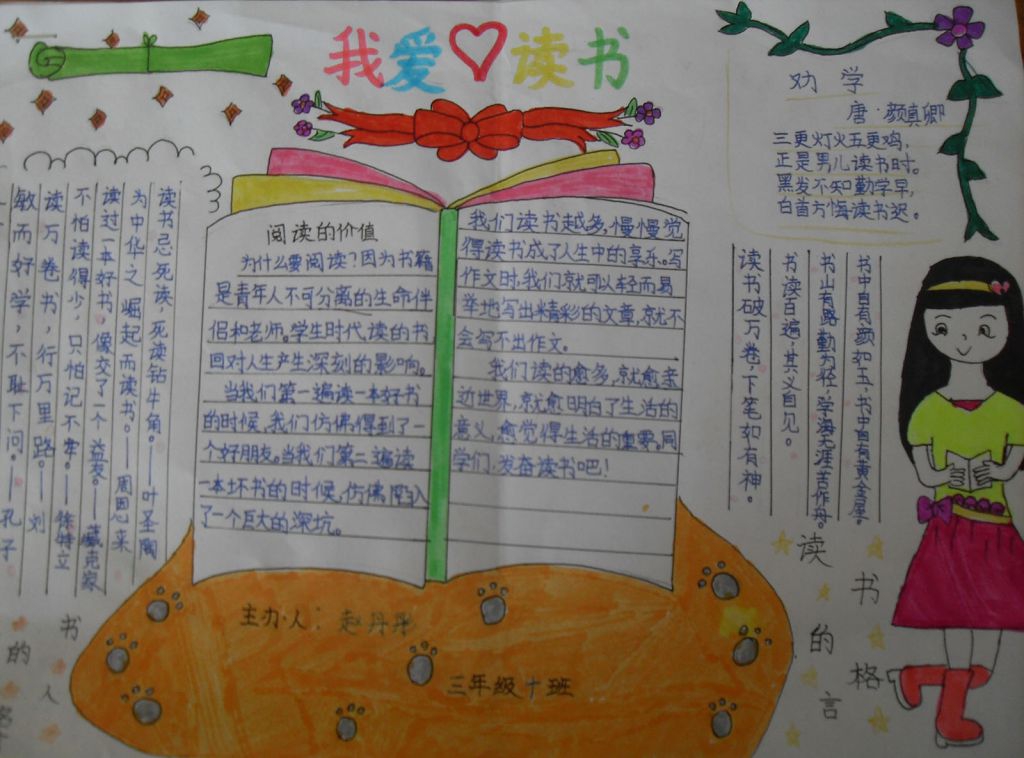 我爱读书
劝学
唐·颜真卿
三更灯火五更鸡，
正是男儿读书时。
黑发不知勤学早，
白首方悔读书迟。
阅读的价值
为什么要阅读？因为书籍
是青年人不可分离的生命伴
侣和老师。学生时代读的书
回对人生产生深刻的影响。
当我们第一遍读一本好书
的时候，我们仿佛得到了一
个好朋友。当我们第二遍读
一本坏书的时候，仿佛陷入
了一个巨大的深坑。
我们读书越多，慢慢觉
得读书成了人生中的享乐。写
作文时，我们就可以轻而易
举地写出精彩的文章，就不
会写不出作文。
我们读的愈多，就愈亲
近世界，就愈明白了生活的
意义，愈觉得生活的重要。同
学们，发奋读书吧！
读书忌死读，死读钻牛角。——叶圣陶
为中华之崛起而读书。——周恩来
读过一本好书，像交了一个益友。——臧克家
不怕读得少，只怕记不牢。——徐特立
读万卷书，行万里路。——刘
敏而好学，不耻下问。——孔子
书中自有颜如玉，书中自有黄金屋。
书山有路勤为径，学海无涯苦作舟。
书读百遍，其义自见。
读书破万卷，下笔如有神。
读书的格言
书的人格
主办人：赵丹彤
三年级十班